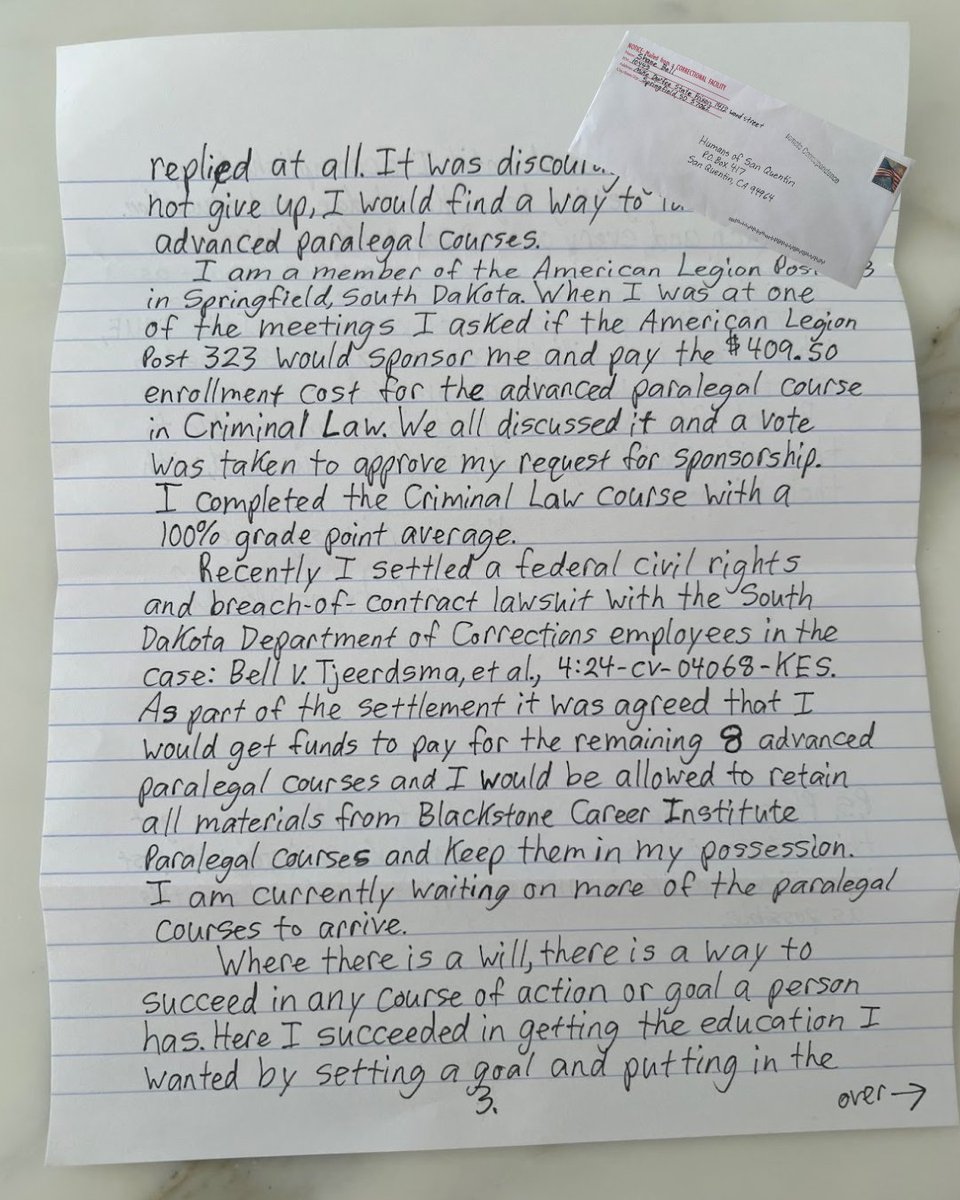 NOTICE: Mailed from a CORRECTIONAL FACILITY
Shane Bell
State Prison, 1412 Wood Street
Springfield, SD 57062
Humans of San Quentin
P.O. Box 417
San Quentin, CA 94964
replied at all. It was
not give up, I would find a way to
advanced paralegal courses.
I am a member of the American Legion
in Springfield, South Dakota. When I was at one
of the meetings I asked if the American Legion
Post 323 would sponsor me and pay the $409.50
enrollment cost for the advanced paralegal course
in Criminal Law. We all discussed it and a vote
was taken to approve my request for sponsorship.
I completed the Criminal Law course with a
100% grade point average.
Recently I settled a federal civil rights
and breach-of-contract lawsuit with the South
Dakota Department of Corrections employees in the
case: Bell v. Tjeerdsma, et al., 4:24-cv-04068-KES.
As part of the settlement it was agreed that I
would get funds to pay for the remaining 8 advanced
paralegal courses and I would be allowed to retain
all materials from Blackstone Career Institute
Paralegal courses and keep them in my possession.
I am currently waiting on more of the paralegal
courses to arrive.
Where there is a will, there is a way to
succeed in any course of action or goal a person
has. Here I succeeded in getting the education I
wanted by setting a goal and putting in the
3.
over →